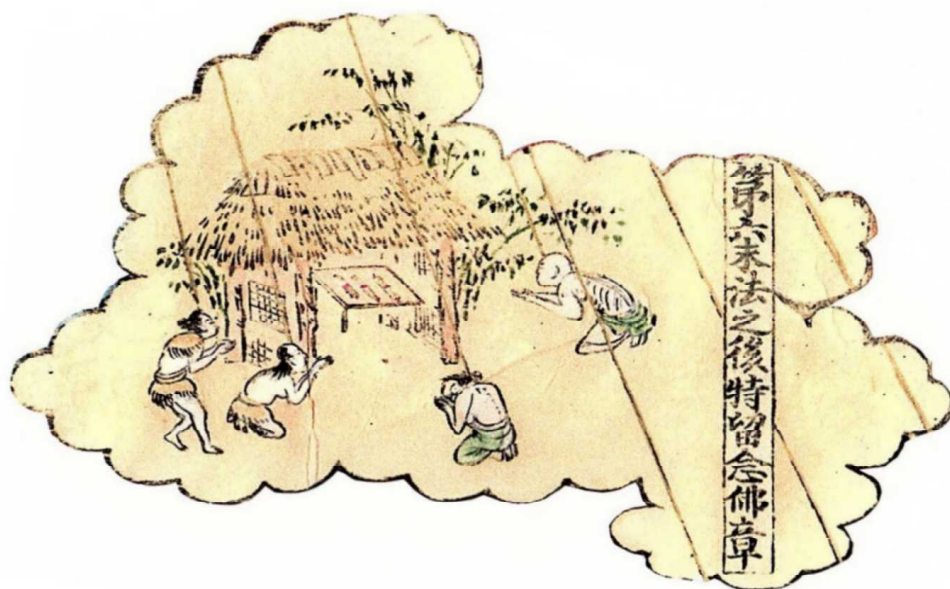 第六末法之後特留念佛章